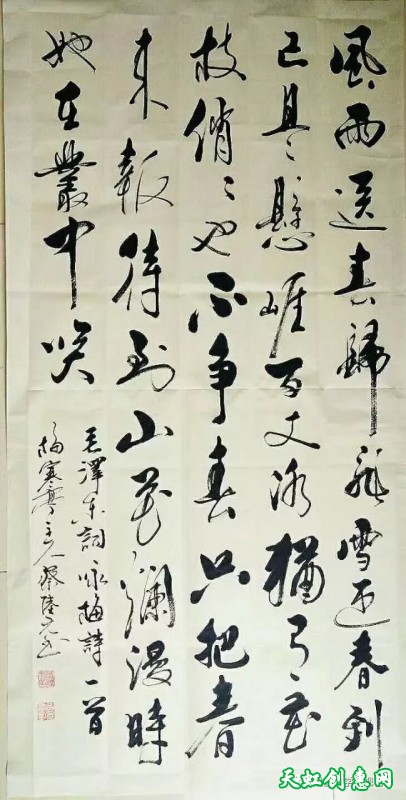 風雨送春歸飛雪迎春到
已是懸崖百丈冰猶有花
枝俏〻也不争春只把春
来報待到山花爛漫時
她在叢中笑
毛澤东詞咏梅詩一首
梅寒齋主人蔡陸
天虹创意网